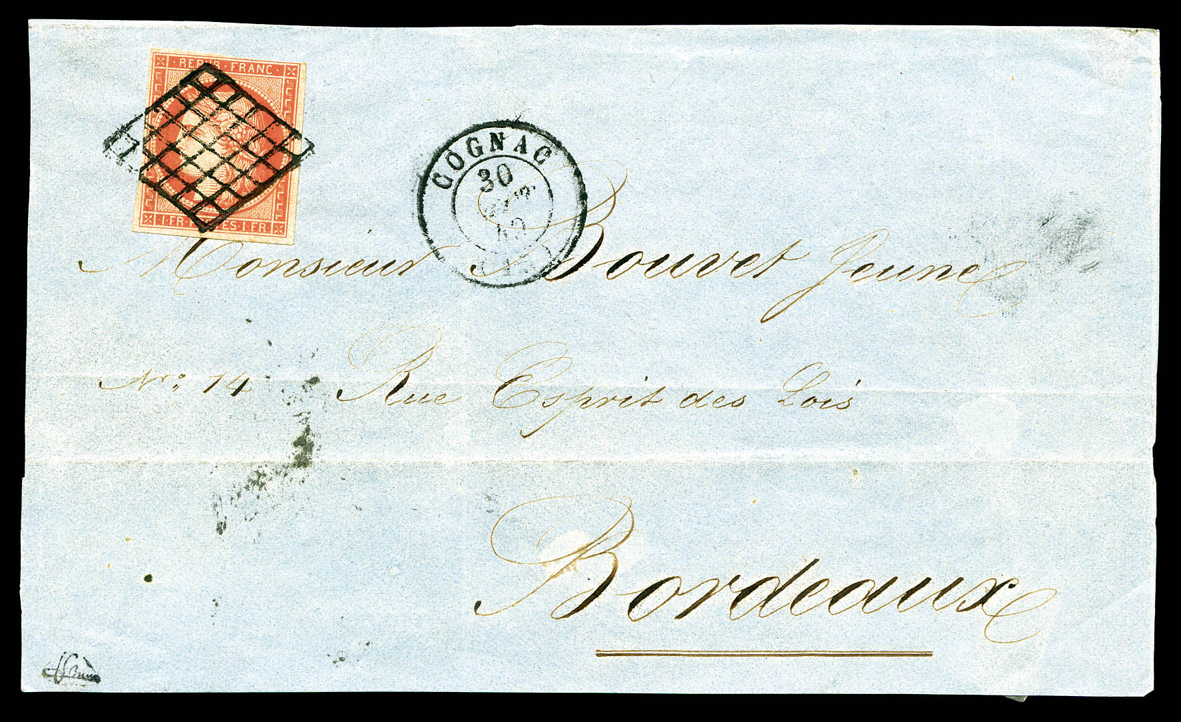 REPUB · FRANC ·
1 FR ES 1 FR
COGNAC
30
49
Monsieur Bouvet Jeune
No: 14 Rue Esprit des Lois
Bordeaux